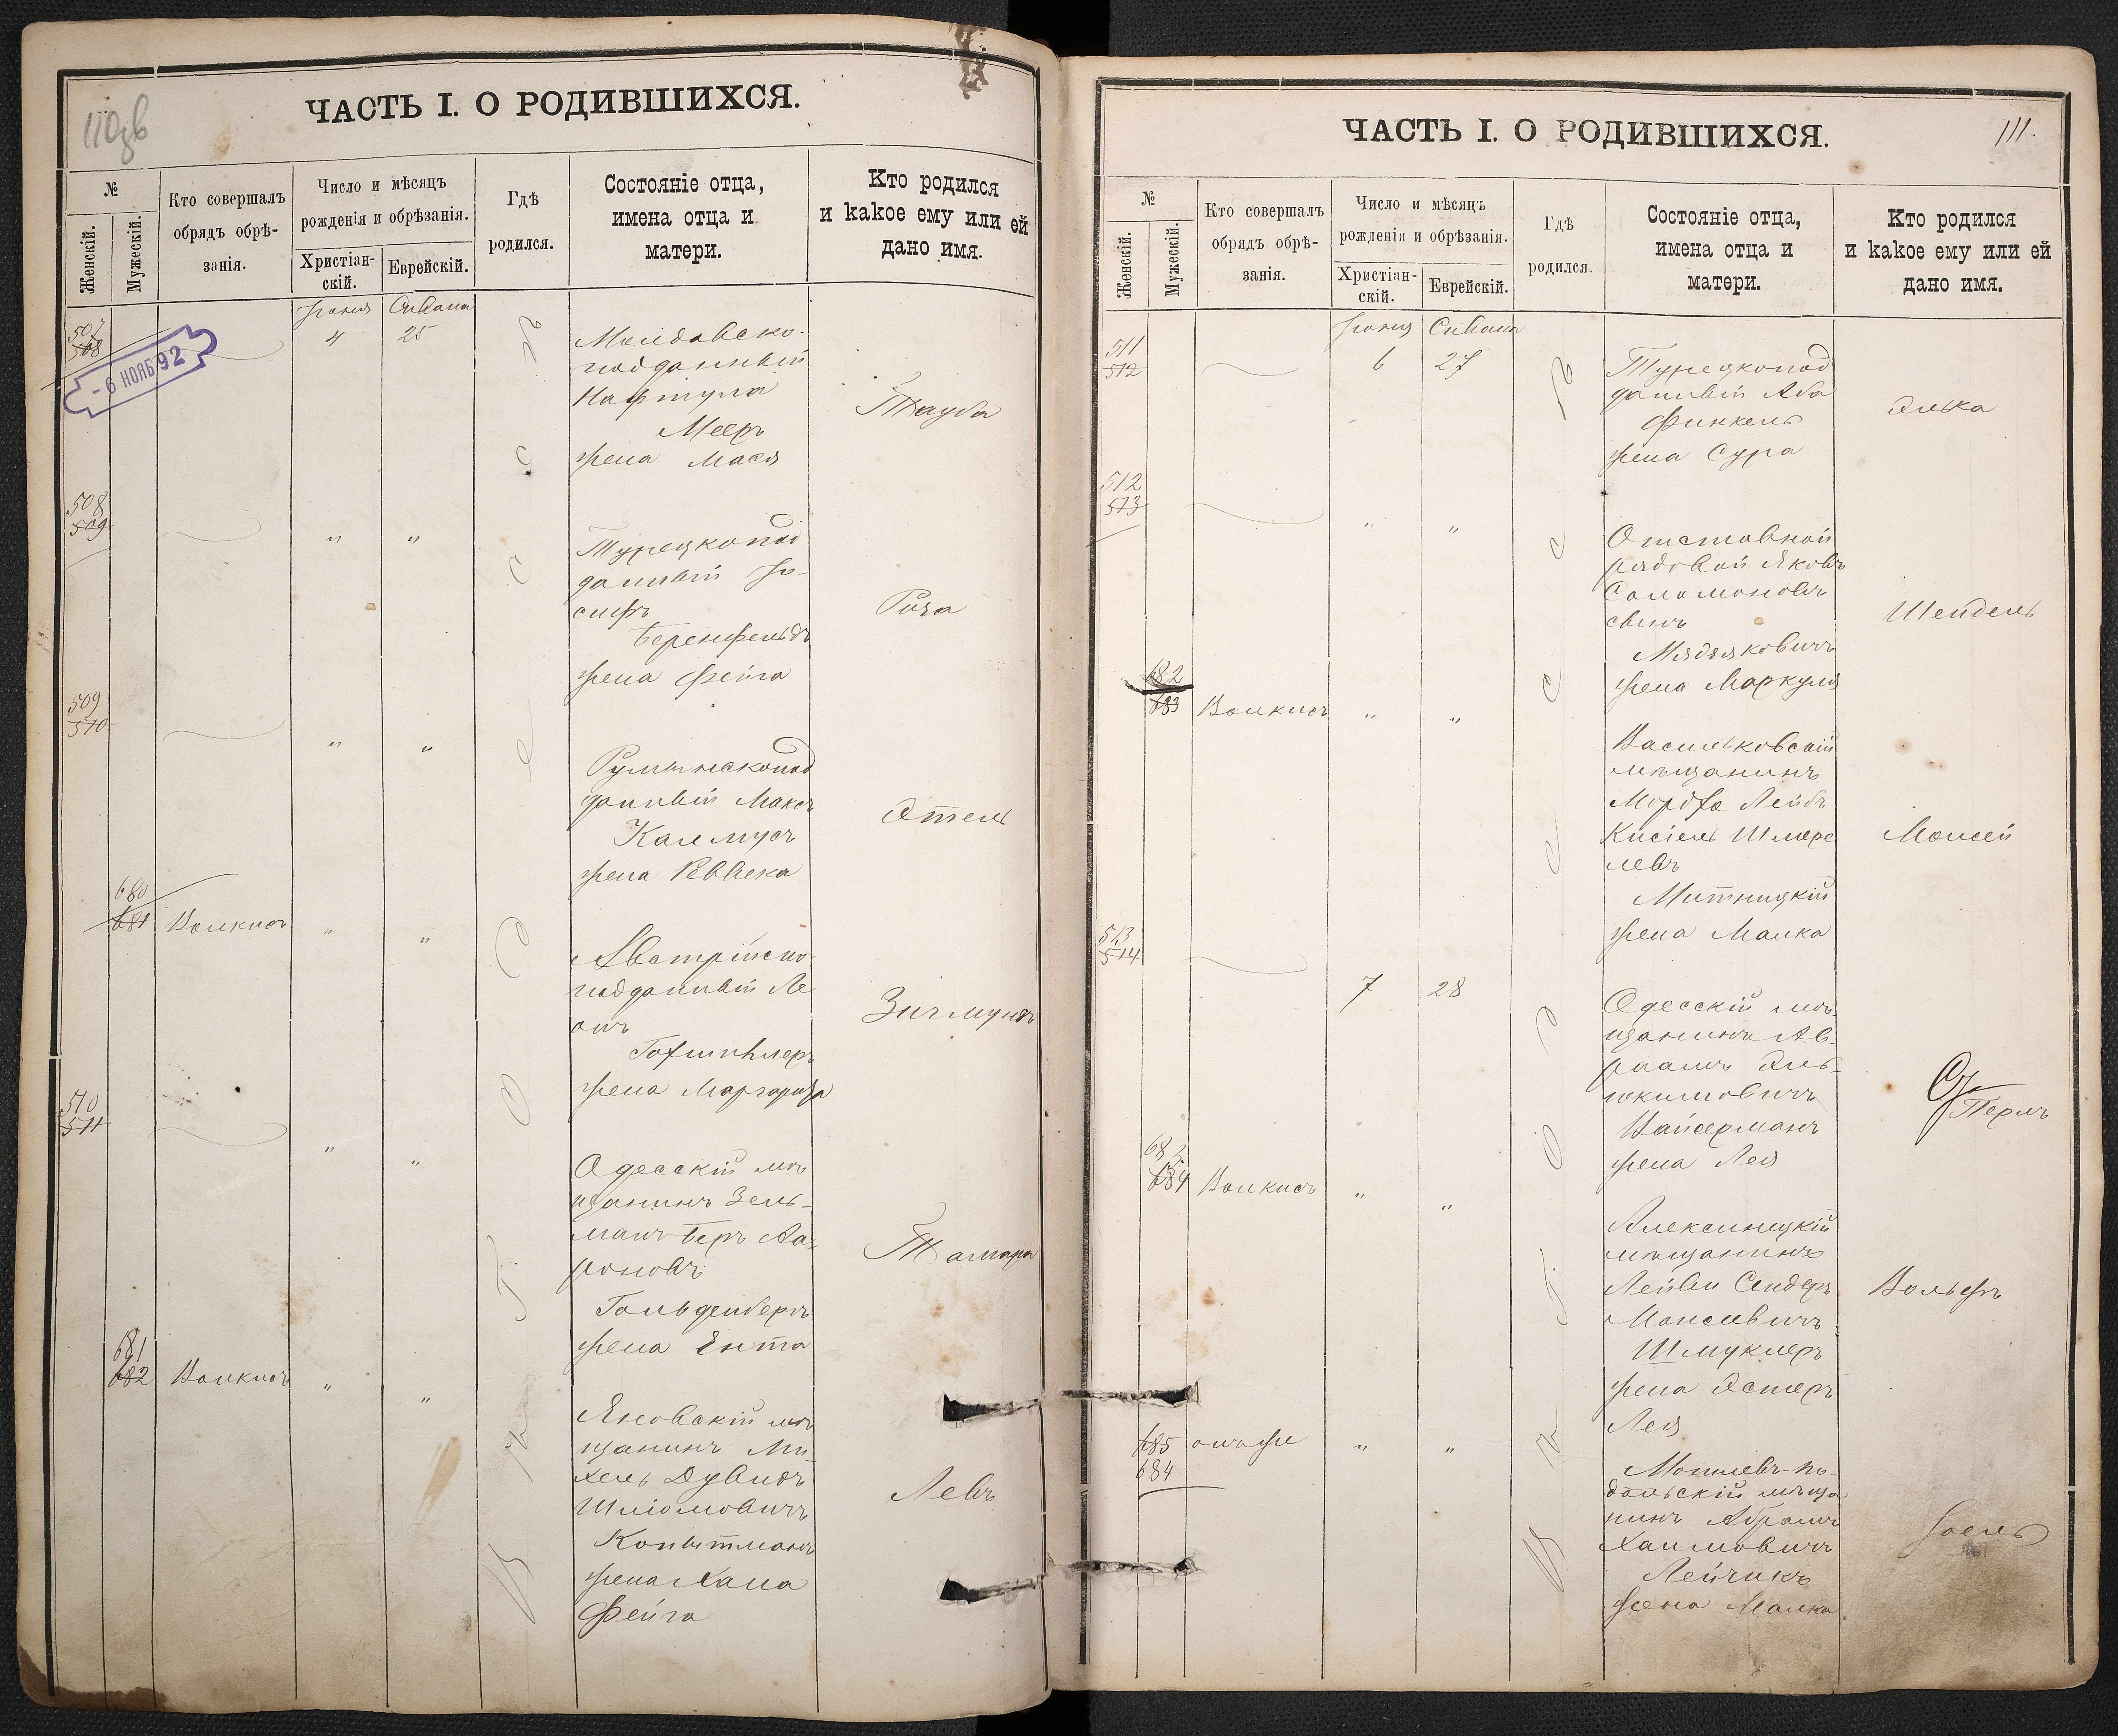 110об
ЧАСТЬ I. О РОДИВШИХСЯ.
№
Женскій.
Мужескій.
Кто совершалъ
обрядъ обрѣ-
занія.
Число и мѣсяцъ
рожденія и обрѣзанія.
Христіан-
скій.
Еврейскій.
Гдѣ
родился.
Состояніе отца,
имена отца и
матери.
Кто родился
и какое ему или ей
дано имя.
Іюня Сивана
507
508
- 6 НОЯБ 92
4 25
Молдавско-
подданный
Нафтула
Меер
жена Мася
Тауба
508
509
" "
Турецкопод
данный Іо-
сифъ
Беренфельдъ
жена Фейга
Роза
509
510
" "
Румынскопод
данный Максъ
Калмусъ
жена Ревека
Этель
680
681
Волкисъ
" "
Австрійско-
подданный Ле
онъ
жена Маргарита
Зигмундъ
510
511
" "
Одесскій мѣ
щанинъ Зель-
манъ Беръ Аа-
роновъ
Гольденбергъ
жена Ента
Тамара
681
682
Волкисъ
" "
Яновскій мѣ
щанинъ Ми
хель Дувидъ
Шліомовичъ
Копытманъ
жена Хана
Фейга
Левъ
111.
ЧАСТЬ I. О РОДИВШИХСЯ.
№
Женскій.
Мужескій.
Кто совершалъ
обрядъ обрѣ-
занія.
Число и мѣсяцъ
рожденія и обрѣзанія.
Христіан-
скій.
Еврейскій.
Гдѣ
родился.
Состояніе отца,
имена отца и
матери.
Кто родился
и какое ему или ей
дано имя.
Іюня Сивана
511
512
6 27
Турецкопод
данный Аба
Финкель
жена Сура
Элька
512
513
" "
Отставной
рядовой Яковъ
Соломоновъ
сынъ
жена Маркуля
Шейдель
682
683
Волкисъ
" "
Васильковскій
мѣщанинъ
Мордко Лейбъ
Кисіель Шмере
левъ
Митницкій
жена Малка
Моисей
513
514
7 28
Одесскій мѣ-
щанинъ Ав-
раамъ Эль-
юкимовичъ
Вайсерманъ
жена Лея
Перль
683
684
Волкисъ
" "
Алексинецкій
мѣщанинъ
Лейви Сендеръ
Моисеевичъ
Шмуклеръ
жена Эстеръ
Лея
Вольфъ
685
684
онъ же
" "
Могилевъ-По-
дольскій мѣща
нинъ Абрамъ
Хаимовичъ
Лейчикъ
жена Малка
Іоель